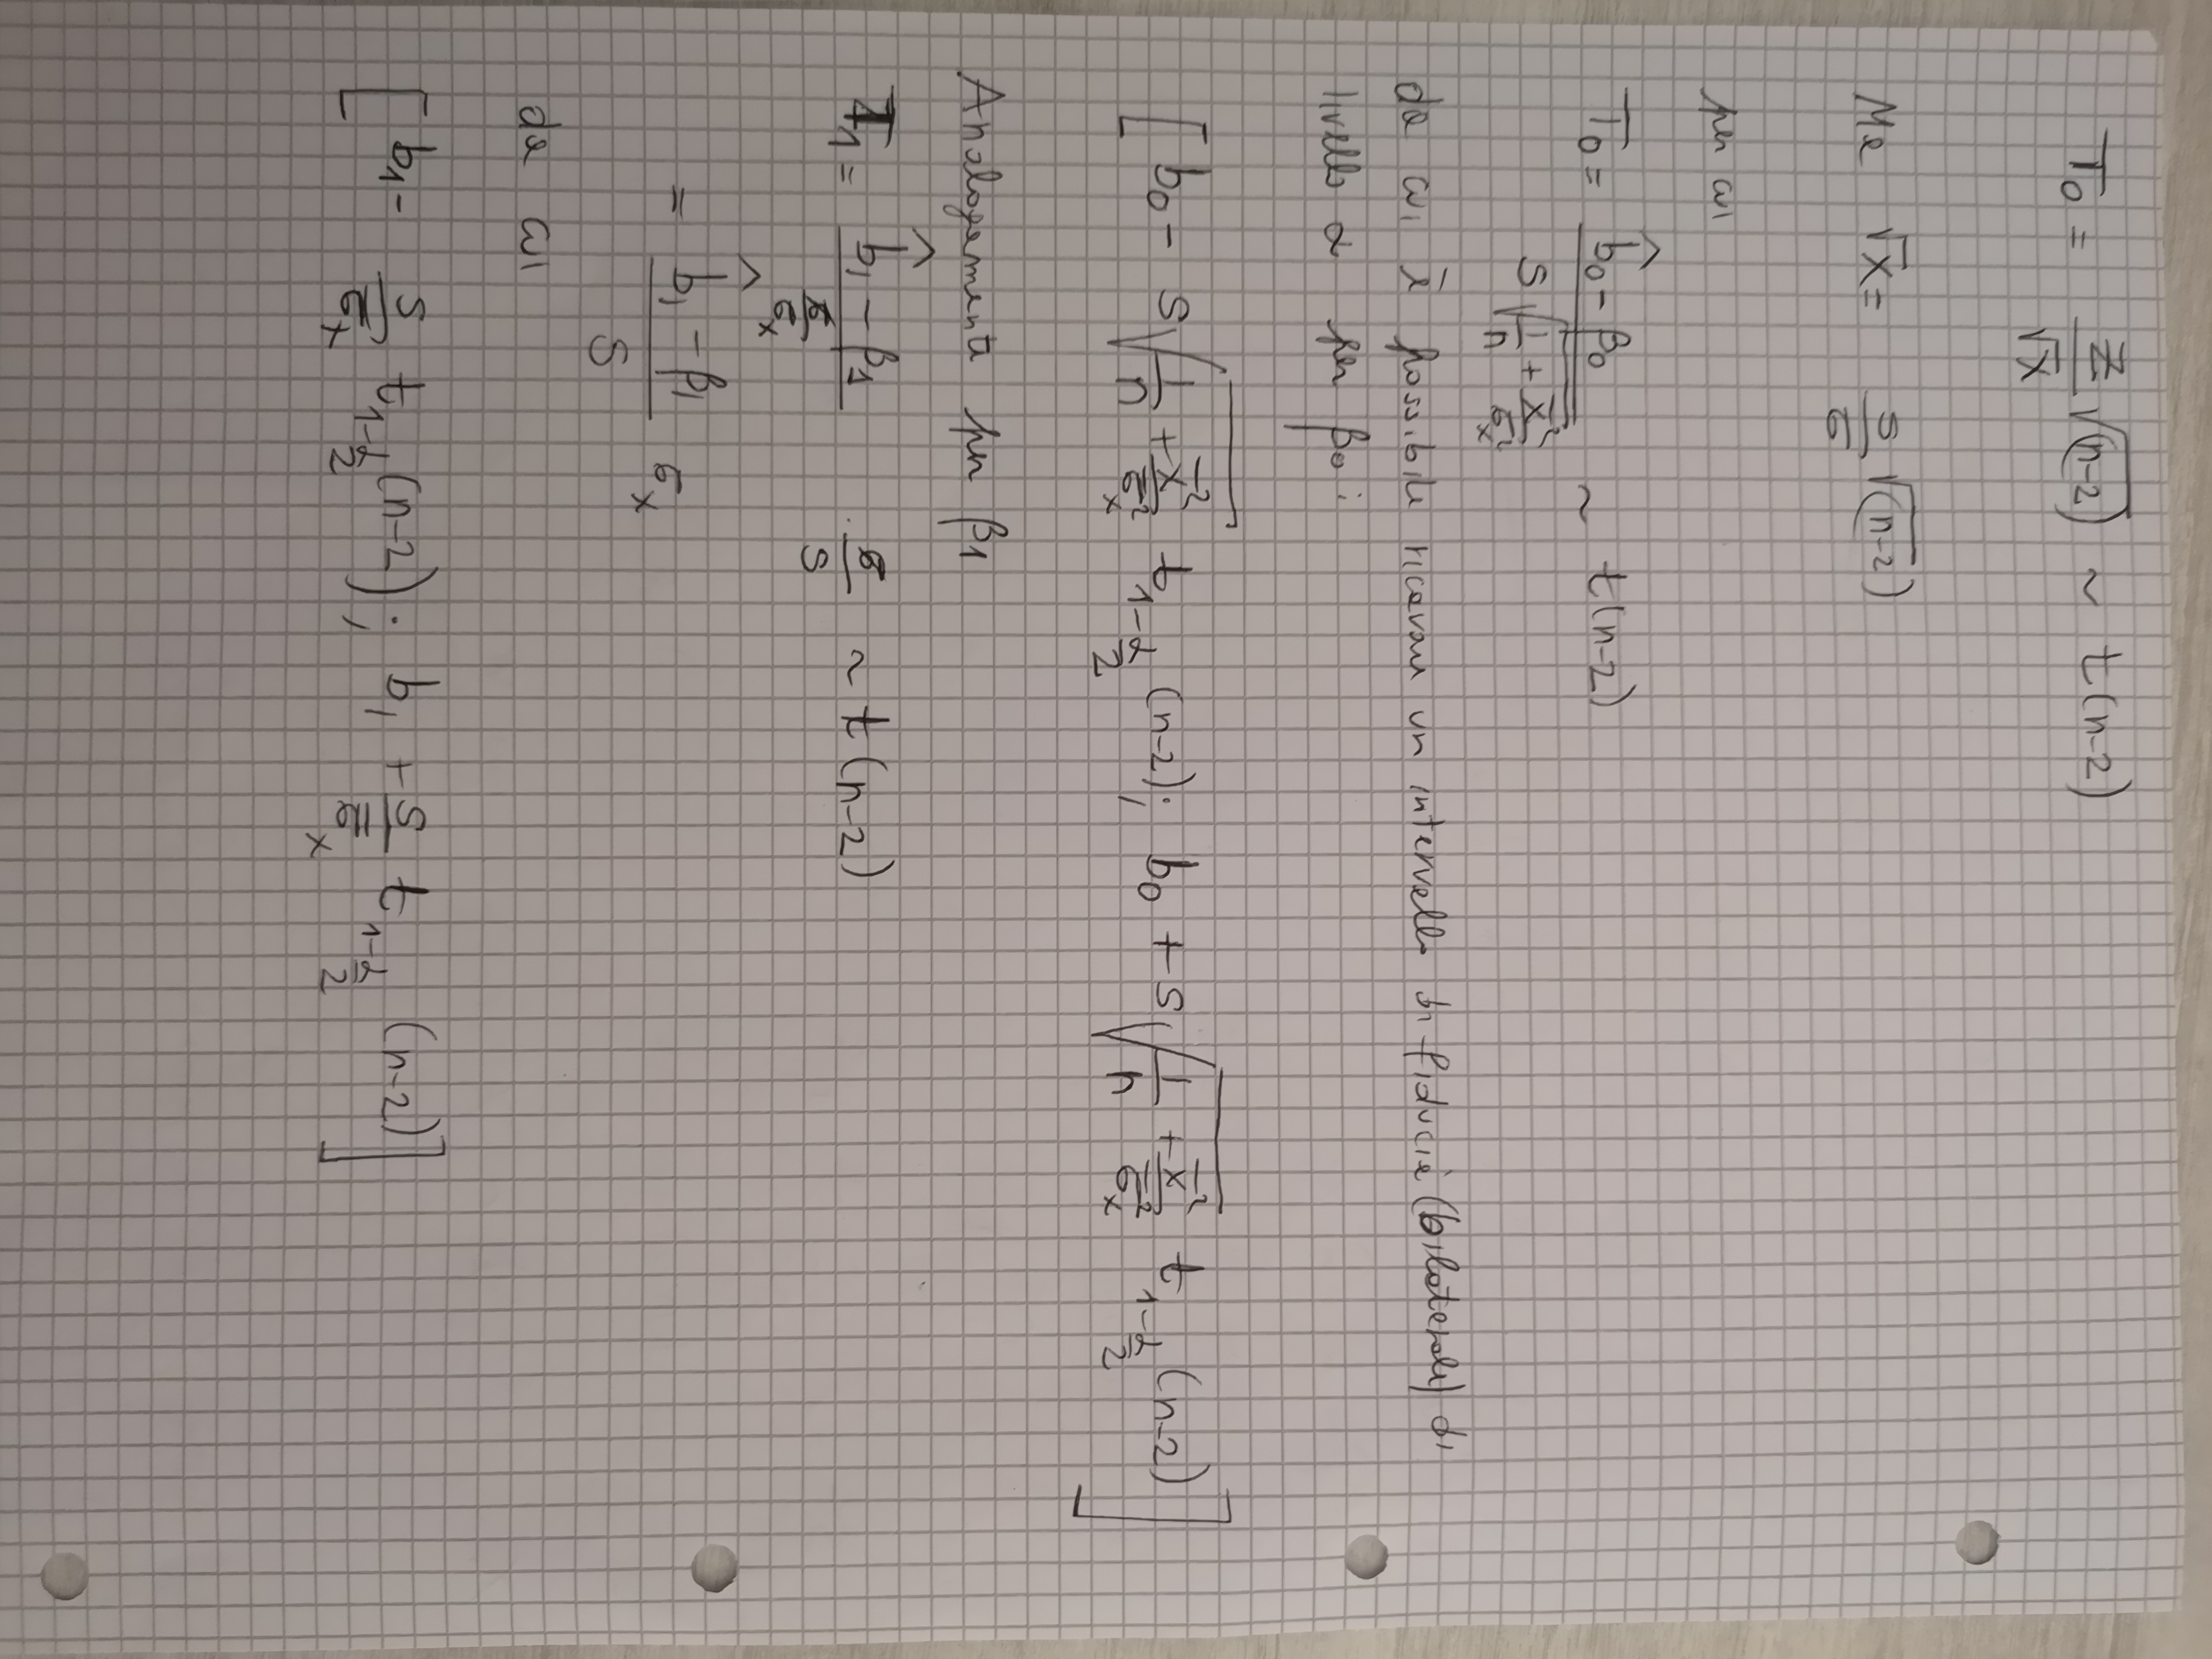 T₀ = Z/√X √(n-2) ~ t(n-2)
Ma √X = S/σ √(n-2)
per cui
T₀ = (b̂₀ - β₀)/(S√(1/n + x̄²/σₓ²)) ~ t(n-2)
da cui è possibile ricavare un intervallo di fiducia (bilaterale) di
livello α per β₀:
[b₀ - S√(1/n + x̄²/σ̄ₓ²) t_{1-α/2}(n-2); b₀ + S√(1/n + x̄²/σ̄ₓ²) t_{1-α/2}(n-2)]
Analogamente per β₁
T₁ = (b̂₁ - β₁)/(σ/σₓ) · σ/S ~ t(n-2)
= (b̂₁ - β₁)/S σₓ
da cui
[b₁ - S/σ̄ₓ t_{1-α/2}(n-2); b₁ + S/σ̄ₓ t_{1-α/2}(n-2)]